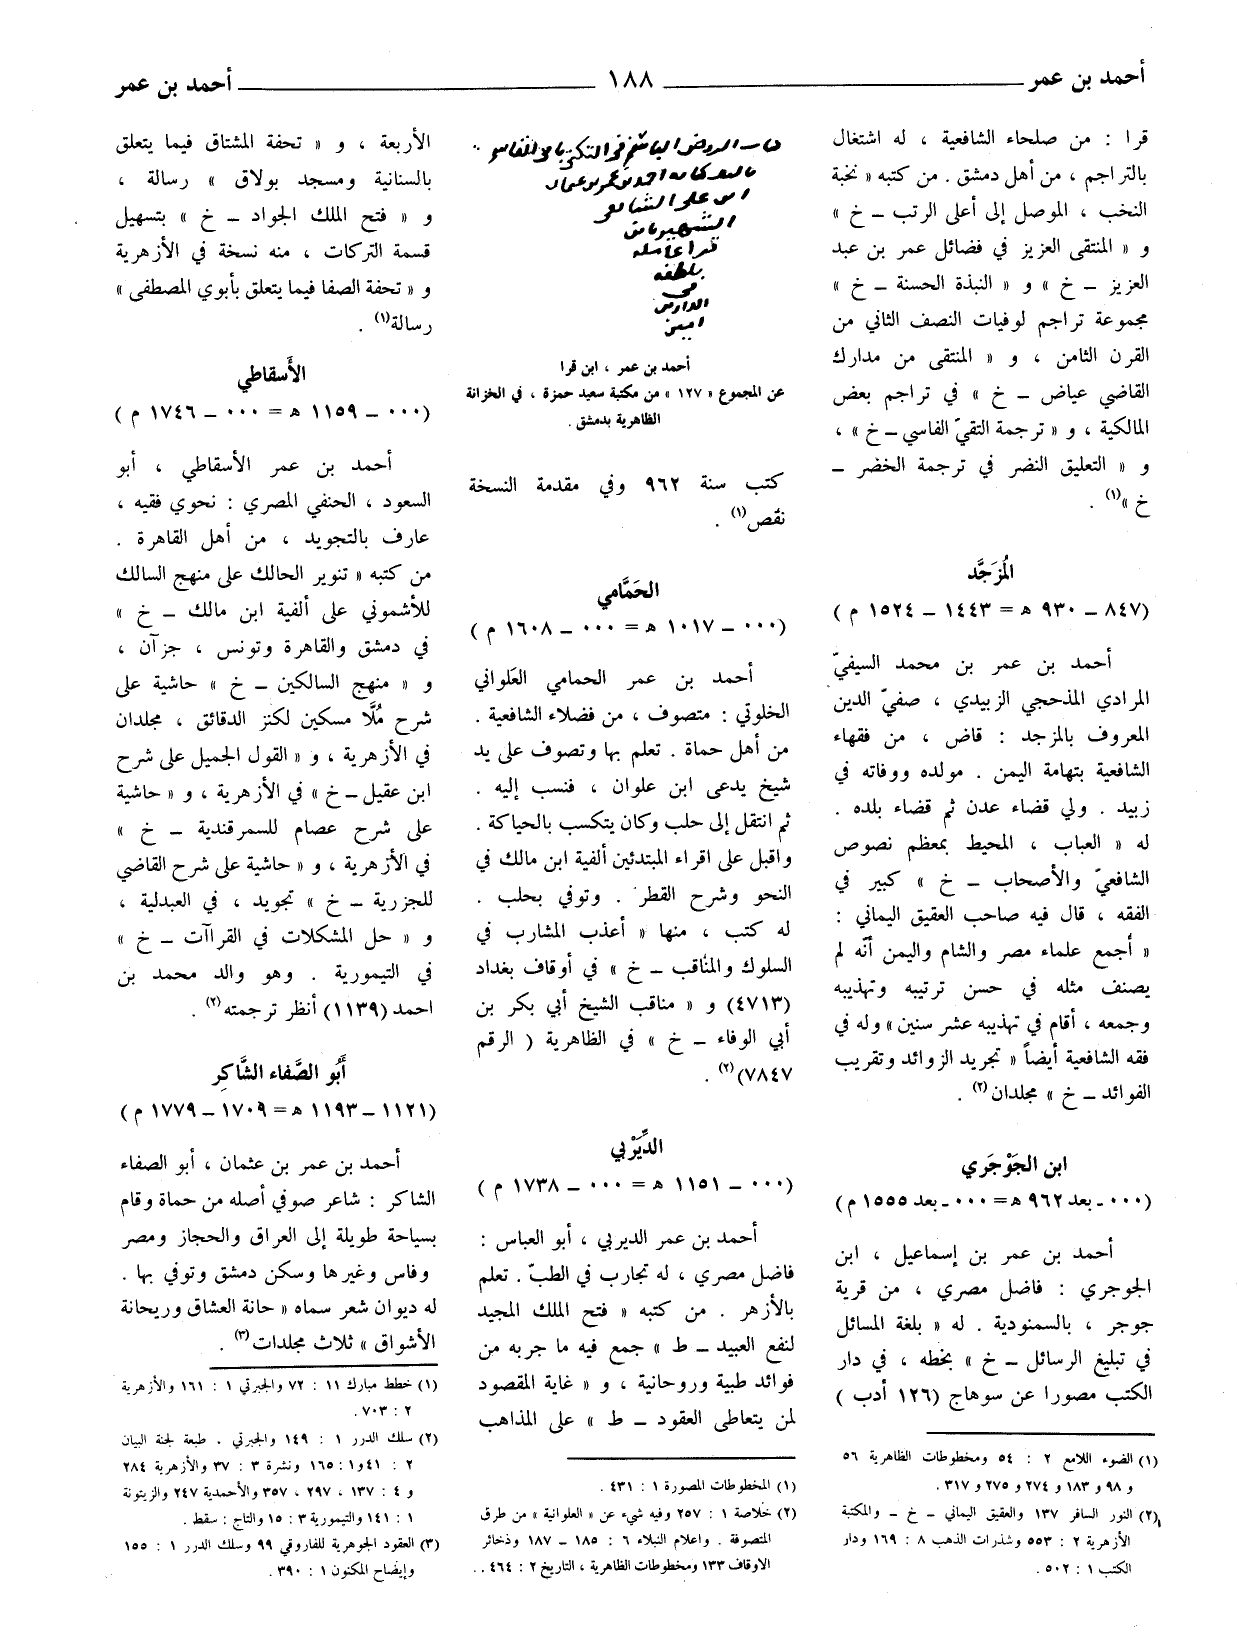 أحمد بن عمر ١٨٨ أحمد بن عمر
قرا : من صلحاء الشافعية ، له اشتغال
بالتراجم ، من أهل دمشق . من كتبه « نخبة
النخب ، الموصل إلى أعلى الرتب ـ خ »
و « المنتقى العزيز في فضائل عمر بن عبد
العزيز ـ خ » و « النبذة الحسنة ـ خ »
مجموعة تراجم لوفيات النصف الثاني من
القرن الثامن ، و « المنتقى من مدارك
القاضي عياض ـ خ » في تراجم بعض
المالكية ، و « ترجمة التقيّ الفاسي ـ خ » ،
و « التعليق النضر في ترجمة الخضر ـ
خ »(١) .
المُزَجَّد
(٨٤٧ ـ ٩٣٠ ه‍ = ١٤٤٣ ـ ١٥٢٤ م )
أحمد بن عمر بن محمد السيفيّ
المرادي المذحجي الزبيدي ، صفيّ الدين
المعروف بالمزجد : قاض ، من فقهاء
الشافعية بتهامة اليمن . مولده ووفاته في
زبيد . ولي قضاء عدن ثم قضاء بلده .
له « العباب ، المحيط بمعظم نصوص
الشافعيّ والأصحاب ـ خ » كبير في
الفقه ، قال فيه صاحب العقيق اليماني :
« أجمع علماء مصر والشام واليمن أنّه لم
يصنف مثله في حسن ترتيبه وتهذيبه
وجمعه ، أقام في تهذيبه عشر سنين » وله في
فقه الشافعية أيضاً « تجريد الزوائد وتقريب
الفوائد ـ خ » مجلدان(٢) .
ابن الجَوْجَري
(٠٠٠ ـ بعد ٩٦٢ ه‍ = ٠٠٠ ـ بعد ١٥٥٥ م )
أحمد بن عمر بن إسماعيل ، ابن
الجوجري : فاضل مصري ، من قرية
جوجر ، بالسمنودية . له « بلغة المسائل
في تبليغ الرسائل ـ خ » بخطه ، في دار
الكتب مصورا عن سوهاج (١٢٦ أدب )
(١) الضوء اللامع ٢ : ٥٤ ومخطوطات الظاهرية ٥٦
و ٩٨ و ١٨٣ و ٢٧٤ و ٢٧٥ و ٣١٧ .
(٢) النور السافر ١٣٧ والعقيق اليماني ـ خ ـ والمكتبة
الأزهرية ٢ : ٥٥٣ وشذرات الذهب ٨ : ١٦٩ ودار
الكتب ١ : ٥٠٢ .
أحمد بن عمر ، ابن قرا
عن المجموع « ١٢٧ » من مكتبة سعيد حمزة ، في الخزانة
الظاهرية بدمشق .
كتب سنة ٩٦٢ وفي مقدمة النسخة
نقص(١) .
الحَمَّامي
(٠٠٠ ـ ١٠١٧ ه‍ = ٠٠٠ ـ ١٦٠٨ م )
أحمد بن عمر الحمامي العَلواني
الخلوتي : متصوف ، من فضلاء الشافعية .
من أهل حماة . تعلم بها وتصوف على يد
شيخ يدعى ابن علوان ، فنسب إليه .
ثم انتقل إلى حلب وكان يتكسب بالحياكة .
واقبل على اقراء المبتدئين ألفية ابن مالك في
النحو وشرح القطر . وتوفي بحلب .
له كتب ، منها « أعذب المشارب في
السلوك والمناقب ـ خ » في أوقاف بغداد
(٤٧١٣) و « مناقب الشيخ أبي بكر بن
أبي الوفاء ـ خ » في الظاهرية ( الرقم
٧٨٤٧)(٢) .
الدِّيَرْبي
(٠٠٠ ـ ١١٥١ ه‍ = ٠٠٠ ـ ١٧٣٨ م )
أحمد بن عمر الديربي ، أبو العباس :
فاضل مصري ، له تجارب في الطبّ . تعلم
بالأزهر . من كتبه « فتح الملك المجيد
لنفع العبيد ـ ط » جمع فيه ما جربه من
فوائد طبية وروحانية ، و « غاية المقصود
لمن يتعاطى العقود ـ ط » على المذاهب
(١) المخطوطات المصورة ١ : ٤٣١ .
(٢) خلاصة ١ : ٢٥٧ وفيه شيء عن « العلوانية » من طرق
المتصوفة . واعلام النبلاء ٦ : ١٨٥ ـ ١٨٧ وذخائر
الاوقاف ١٣٣ ومخطوطات الظاهرية ، التاريخ ٢ : ٤٦٤ ..
الأربعة ، و « تحفة المشتاق فيما يتعلق
بالسنانية ومسجد بولاق » رسالة ،
و « فتح الملك الجواد ـ خ » بتسهيل
قسمة التركات ، منه نسخة في الأزهرية
و « تحفة الصفا فيما يتعلق بأبوي المصطفى »
رسالة(١) .
الأَسقاطي
(٠٠٠ ـ ١١٥٩ ه‍ = ٠٠٠ ـ ١٧٤٦ م )
أحمد بن عمر الأسقاطي ، أبو
السعود ، الحنفي المصري : نحوي فقيه ،
عارف بالتجويد ، من أهل القاهرة .
من كتبه « تنوير الحالك على منهج السالك
للأشموني على ألفية ابن مالك ـ خ »
في دمشق والقاهرة وتونس ، جزآن ،
و « منهج السالكين ـ خ » حاشية على
شرح مُلّا مسكين لكنز الدقائق ، مجلدان
في الأزهرية ، و « القول الجميل على شرح
ابن عقيل ـ خ » في الأزهرية ، و « حاشية
على شرح عصام للسمرقندية ـ خ »
في الأزهرية ، و « حاشية على شرح القاضي
للجزرية ـ خ » تجويد ، في العبدلية ،
و « حل المشكلات في القراآت ـ خ »
في التيمورية . وهو والد محمد بن
احمد (١١٣٩) أنظر ترجمته(٢) .
أَبُو الصَّفاء الشَّاكِر
(١١٢١ ـ ١١٩٣ ه‍ = ١٧٠٩ ـ ١٧٧٩ م )
أحمد بن عمر بن عثمان ، أبو الصفاء
الشاكر : شاعر صوفي أصله من حماة وقام
بسياحة طويلة إلى العراق والحجاز ومصر
وفاس وغيرها وسكن دمشق وتوفي بها .
له ديوان شعر سماه « حانة العشاق وريحانة
الأشواق » ثلاث مجلدات(٣) .
(١) خطط مبارك ١١ : ٧٢ والجبرتي ١ : ١٦١ والأزهرية
٢ : ٧٠٣ .
(٢) سلك الدرر ١ : ١٤٩ والجبرتي . طبعة لجنة البيان
٢ : ٤١ و ١ : ١٦٥ ونشرة ٣ : ٣٧ والأزهرية ٢٨٤
و ٤ : ١٣٧ ، ٢٩٧ ، ٣٥٧ والأحمدية ٢٤٧ والزيتونة
١ : ١٤١ والتيمورية ٣ : ١٥ والتاج : سقط .
(٣) العقود الجوهرية للفاروقي ٩٩ وسلك الدرر ١ : ١٥٥
وإيضاح المكنون ١ : ٣٩٠ .